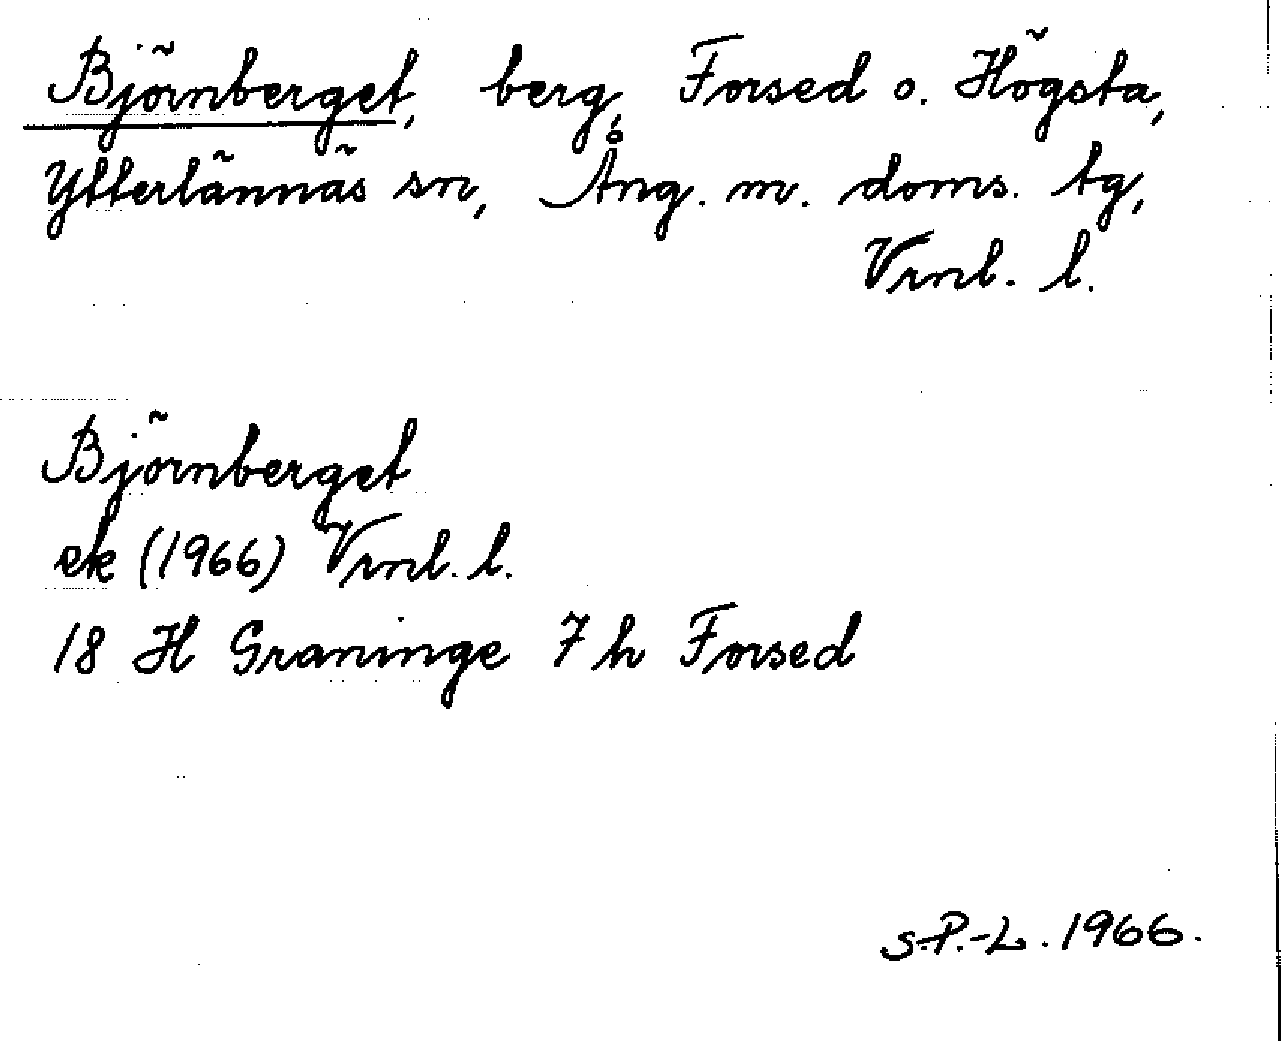 Björnberget, berg, Forsed o. Högsta,
Ytterlännäs sn, Ång. m. doms. tg,
Vrnl. l.
Björnberget
ek (1966) Vrnl. l.
18 H Graninge 7 h Forsed
S.P.-L. 1966.